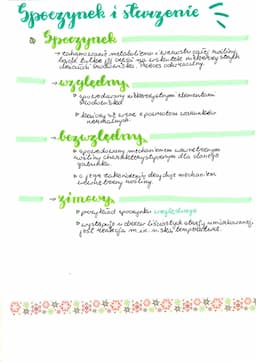 Spoczynek i starzenie
Spoczynek
→ zahamowanie metabolizmu i wzrostu całej rośliny
bądź tylko jej części na skutek niekorzystnych
warunków środowiska. Proces odwracalny.
względny
spowodowany niekorzystnymi elementami
środowiska
kończy się wraz z powrotem warunków
normalnych.
bezwzględny
spowodowany mechanizmem wewnętrznym
rośliny charakterystycznym dla danego
gatunku.
o jego zakończeniu decyduje mechanizm
wewnętrzny rośliny.
zimowy
przykład spoczynku względnego
występuje u drzew liściastych strefy umiarkowanej
jest reakcją m.in. niską temperaturę.